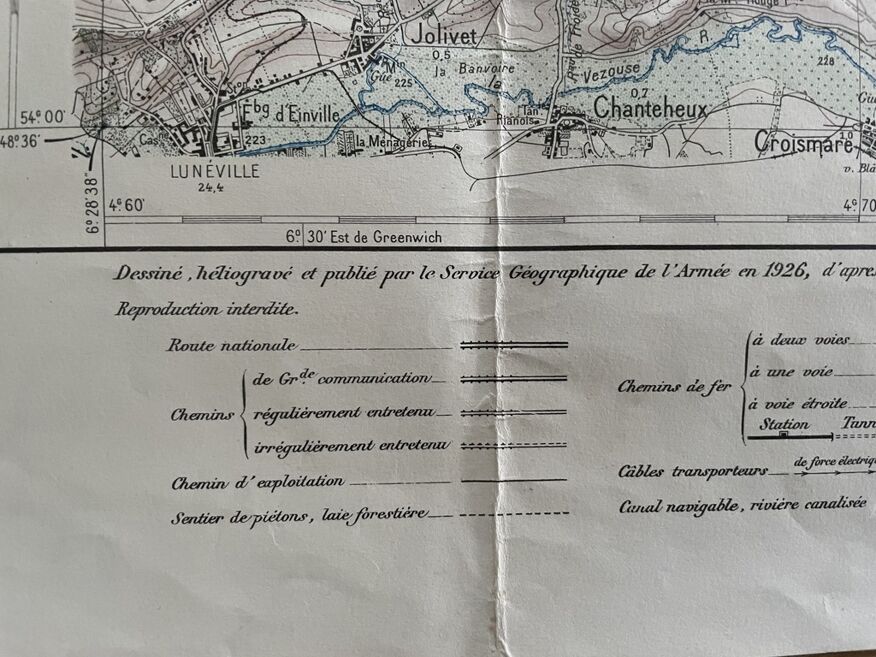 Jolivet
0,5
la Banvoire
Gué
225
Vezouse
R.
228
0,7
Chanteheux
Fbg d'Einville
223
Casne
la Ménagerie
Croismare
1,0
v. Blâ
54G,00'
48°36'
LUNÉVILLE
24,4
6°28'38"
4G,60'
4G,70
6° 30' Est de Greenwich
Dessiné, héliogravé et publié par le Service Géographique de l'Armée en 1926, d'apre
Reproduction interdite.
Route nationale
Chemins
de Grde communication
régulièrement entretenu
irrégulièrement entretenu
Chemin d'exploitation
Sentier de piétons, laie forestière
Chemins de fer
à deux voies
à une voie
à voie étroite
Station
Tunn
Câbles transporteurs
de force électriqu
Canal navigable, rivière canalisée